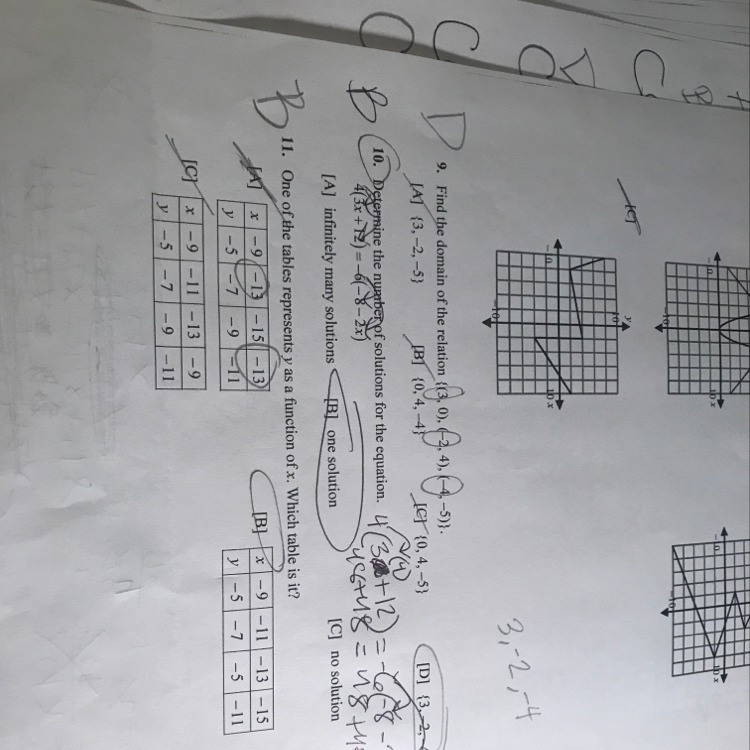 [C]
y
10
-10
10 x
-10
-10
10 x
-10
-10
10 x
-10
D
9. Find the domain of the relation {(3, 0), (-2, 4), (-4, -5)}.
3, -2, -4
[A] {3, -2, -5}
[B] {0, 4, -4}
[C] {0, 4, -5}
[D] {3, -2, -4
B
10. Determine the number of solutions for the equation.
4(3x + 12) = -6(-8 - 2x)
[A] infinitely many solutions
[B] one solution
[C] no solution
B
11. One of the tables represents y as a function of x. Which table is it?
[A]
x -9 -13 -15 -13
y -5 -7 -9 -11
[B]
x -9 -11 -13 -15
y -5 -7 -5 -11
[C]
x -9 -11 -13 -9
y -5 -7 -9 -11